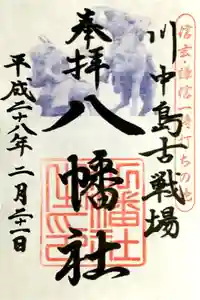 信玄・謙信一騎打ちの地
川中島古戦場
奉拝
八幡社
平成二十八年二月二十一日